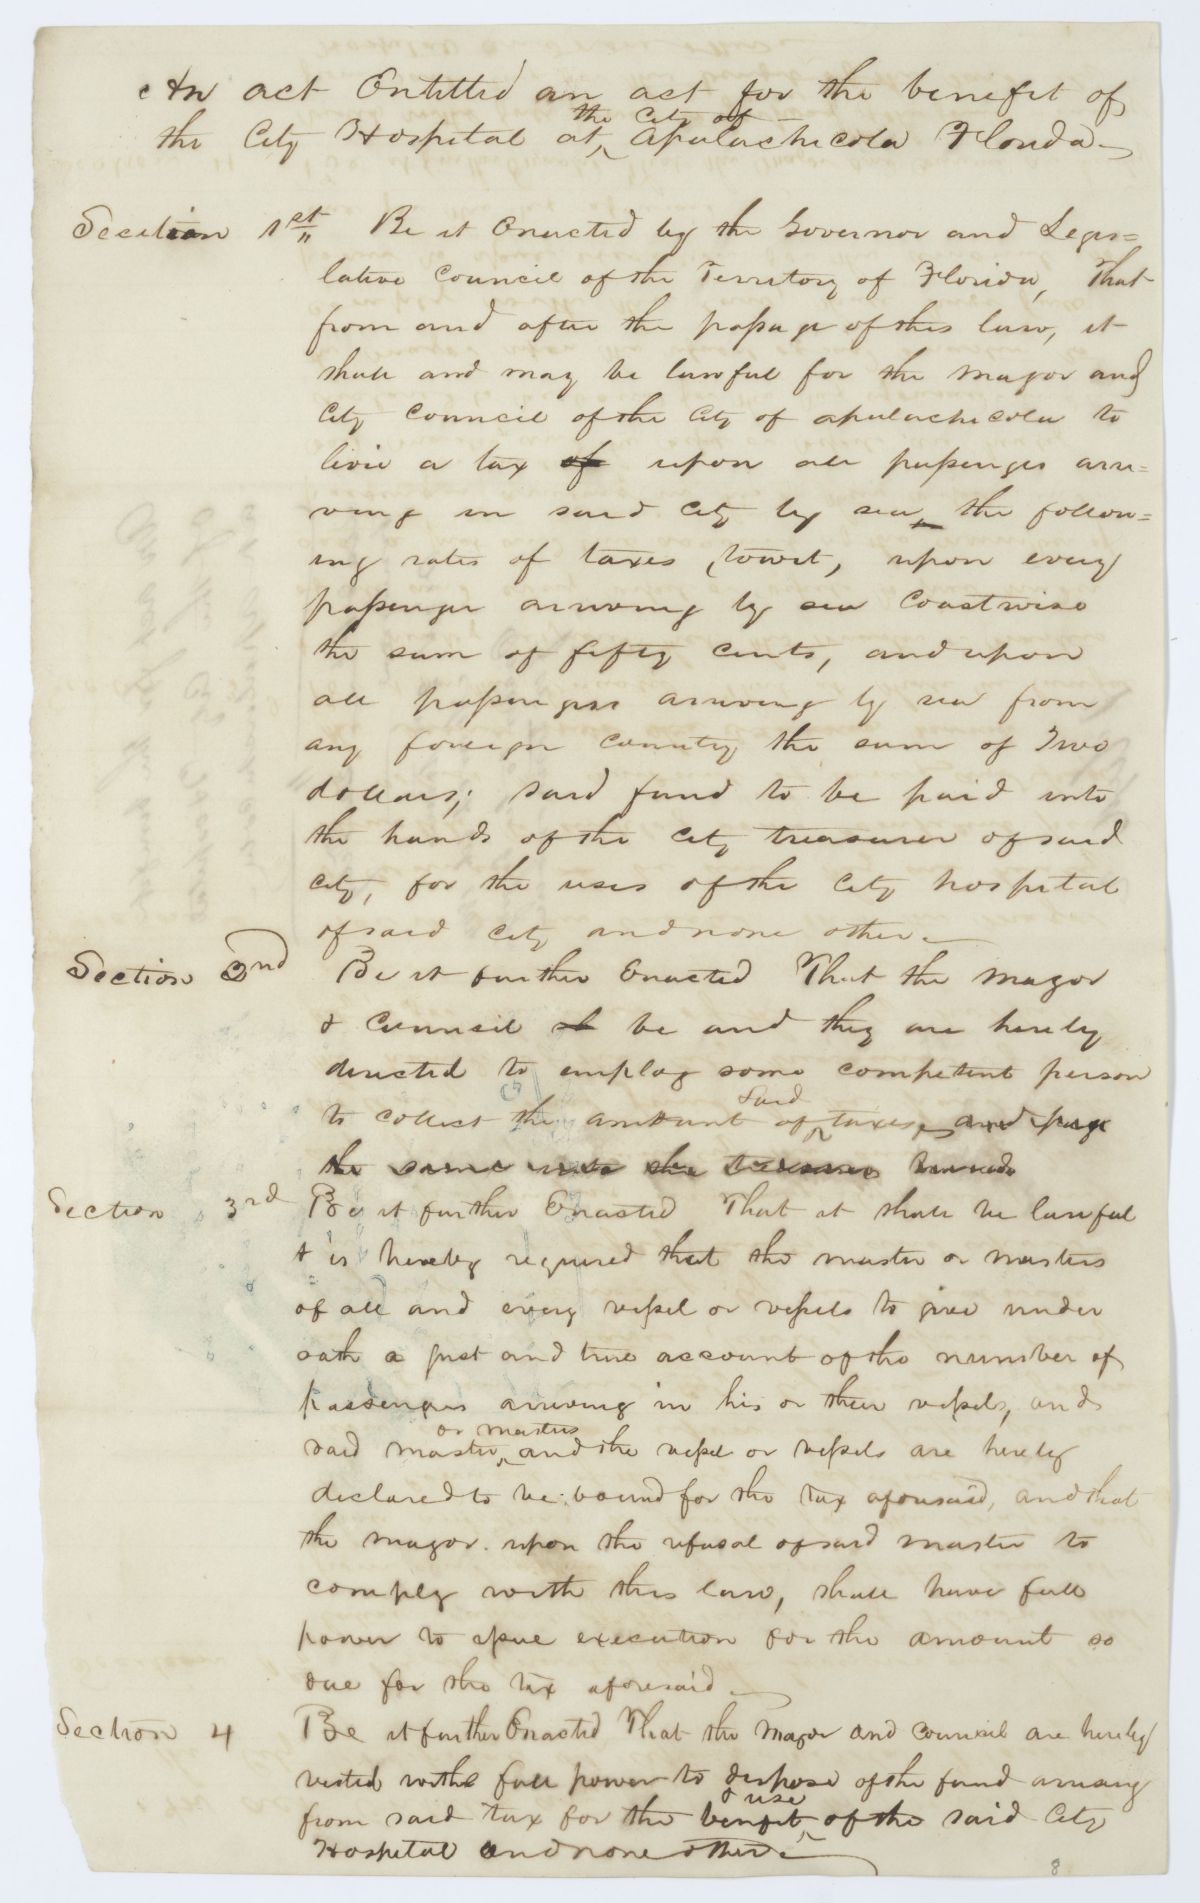 An act Entitled an act for the benefit of
the City Hospital at the City of Apalachicola Florida.
Section 1st Be it Enacted by the Governor and Legis=
lative Council of the Territory of Florida, That
from and after the passage of this law, it
shall and may be lawful for the Mayor and
City Council of the City of apalachicola to
livie a tax of upon all passenges arri=
ving in said City by sea, the follow=
ing rates of taxes (towit, upon every
passenger arriving by sea Coastwise
the sum of fifty cents, and upon
all passengers arriving by sea from
any foreign country the sum of Two
dollars; said fund to be paid into
the hands of the City treasurer of said
City, for the uses of the City hospital
of said City and none other.
Section 2nd Be it further Enacted That the Mayor
& Council sh be and they are hereby
directed to employ some competent person
to collect the amount of said taxes, and pay
the same into the treasures hands
Section 3rd Be it further Enacted That it shall be lawful
& is hereby required that the master or masters
of all and every vessel or vessels to give under
oath a just and true account of the number of
passengers arriving in his or their vessels, and
said master or masters, and the vessel or vessels are hereby
declared to be bound for the tax aforesaid, and that
the mayor upon the refusal of said master to
comply with this law, shall have full
power to issue execution for the amount so
due for the tax aforesaid
Section 4 Be it further Enacted That the Mayor and Council are hereby
vested with full power to dispose of the fund arising
from said tax for the benefit & use of the said City
Hospital and none other.
8